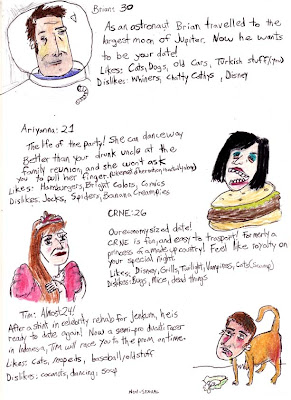 Brian: 30
As an astronaut Brian travelled to the
largest moon of Jupitor. Now he wants
to be your date!
Likes: Cats, Dogs, old Cars, Turkish stuff,
Dislikes: Whiners, Chatty Cathys, Disney
Ariyanna: 21
The life of the party! She can dance way
Better than your drunk uncle at the
family reunion, and she wont ask
you to pull her finger.
Likes: Hamburgers, Bright Colors, Comics
Dislikes: Jocks, Spiders, Banana Creampies
CRNE: 26
Our economy sized date!
CRNE is fun, and easy to trasport! Formerly a
princess of a make up country! Feel like royalty on
your special night.
Likes: Disney, Grills, Twilight, Vampires, Cats
Dislikes: Bugs, Mice, dead things
Tim: Almost 24!
After a stint in celebrity rehab for Jenkem, he is
ready to date again! Now a semi-pro
in Indonesia, Tim will race you to the prom on time.
Likes: Cats, mopeds, baseball/old stuff
Dislikes: coconuts, dancing, soap